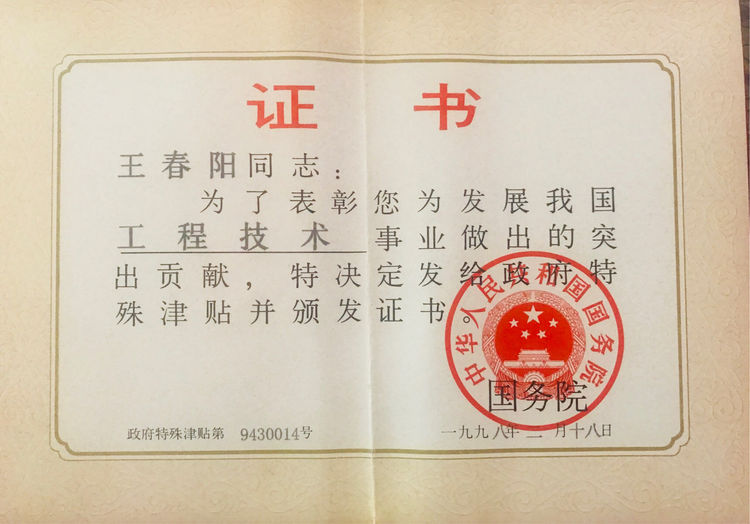 证书
王春阳同志：
为了表彰您为发展我国
工程技术事业做出的突
出贡献，特决定发给政府特
殊津贴并颁发证书。
中华人民共和国国务院
国务院
政府特殊津贴第 9430014号
一九九八年二月十八日